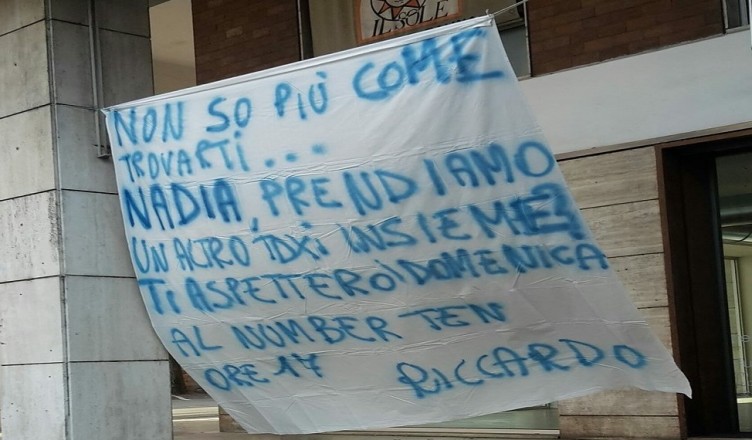 IL SOLE
NON SO PIÙ COME
TROVARTI...
NADIA, PRENDIAMO
UN ALTRO TAXI INSIEME?
TI ASPETTERÒ DOMENICA
AL NUMBER TEN
ORE 17 RICCARDO